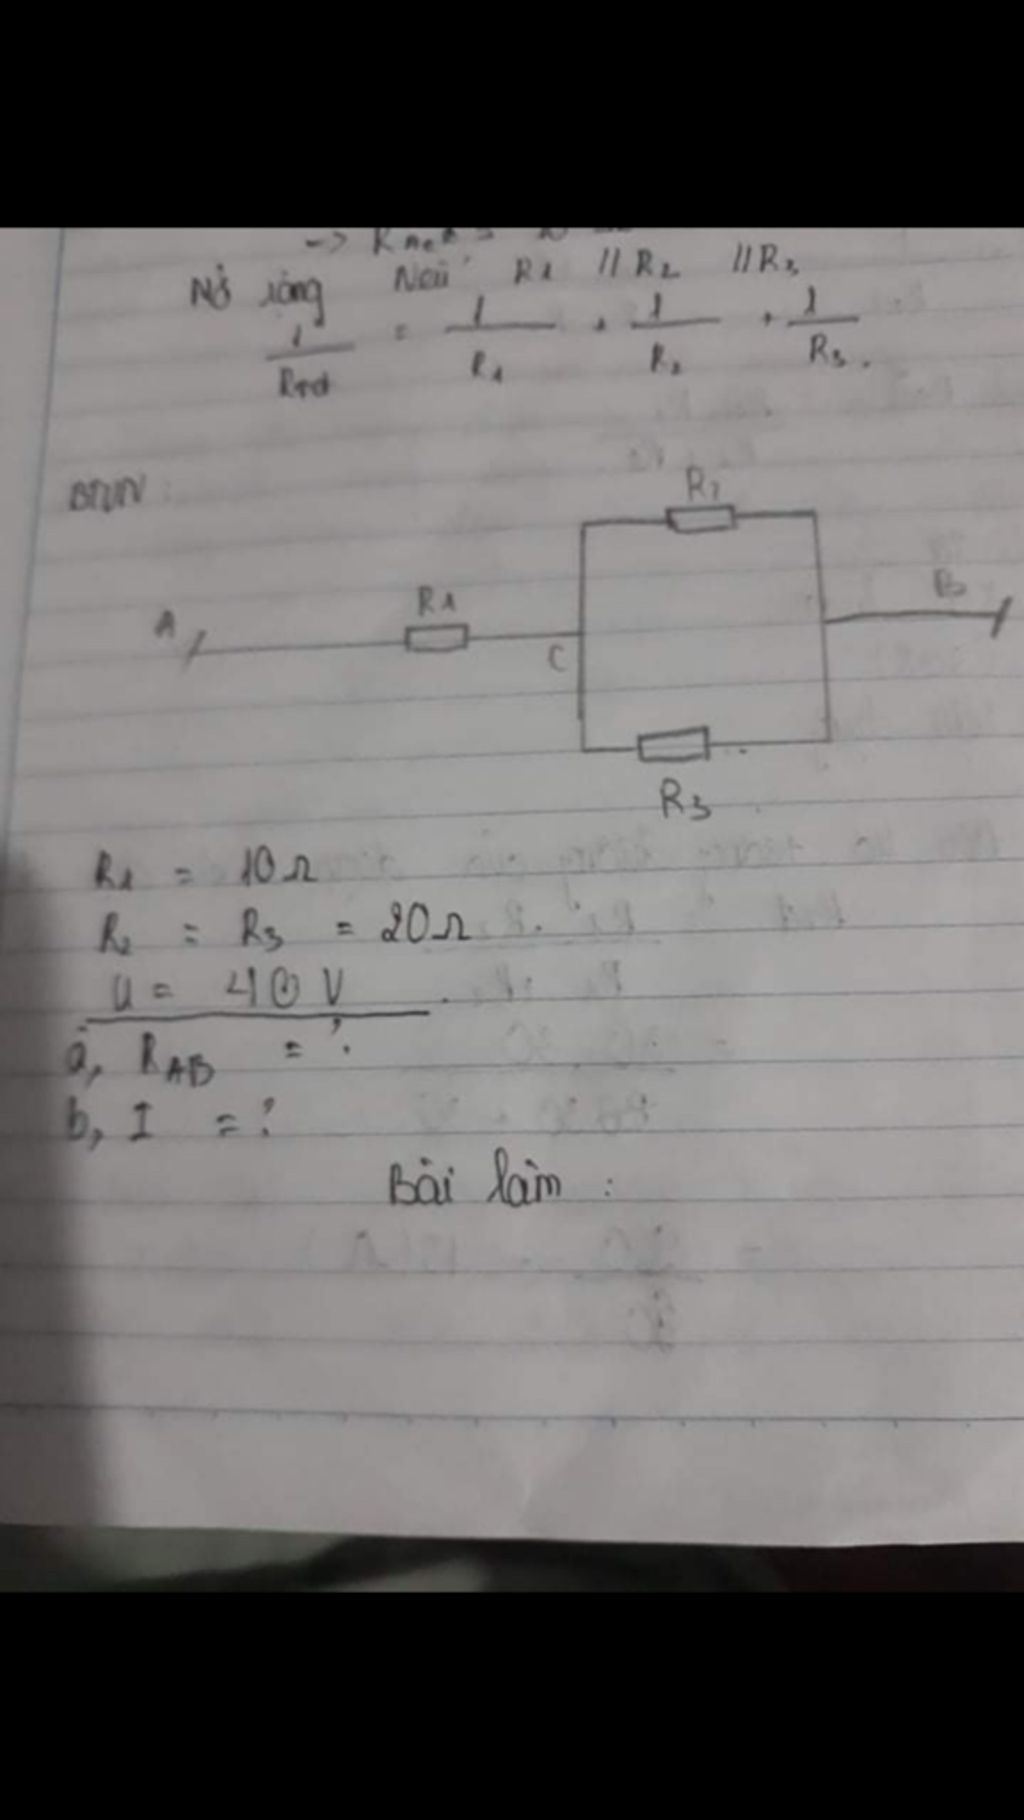 Mở rộng Nếu R1 // R2 // R3
1/Rtđ = 1/R1 + 1/R2 + 1/R3.
BTVN:
R2
A R1 C B
R3
R1 = 10Ω
R2 = R3 = 20Ω
U = 40 V
a, RAB = ?
b, I = ?
Bài làm: